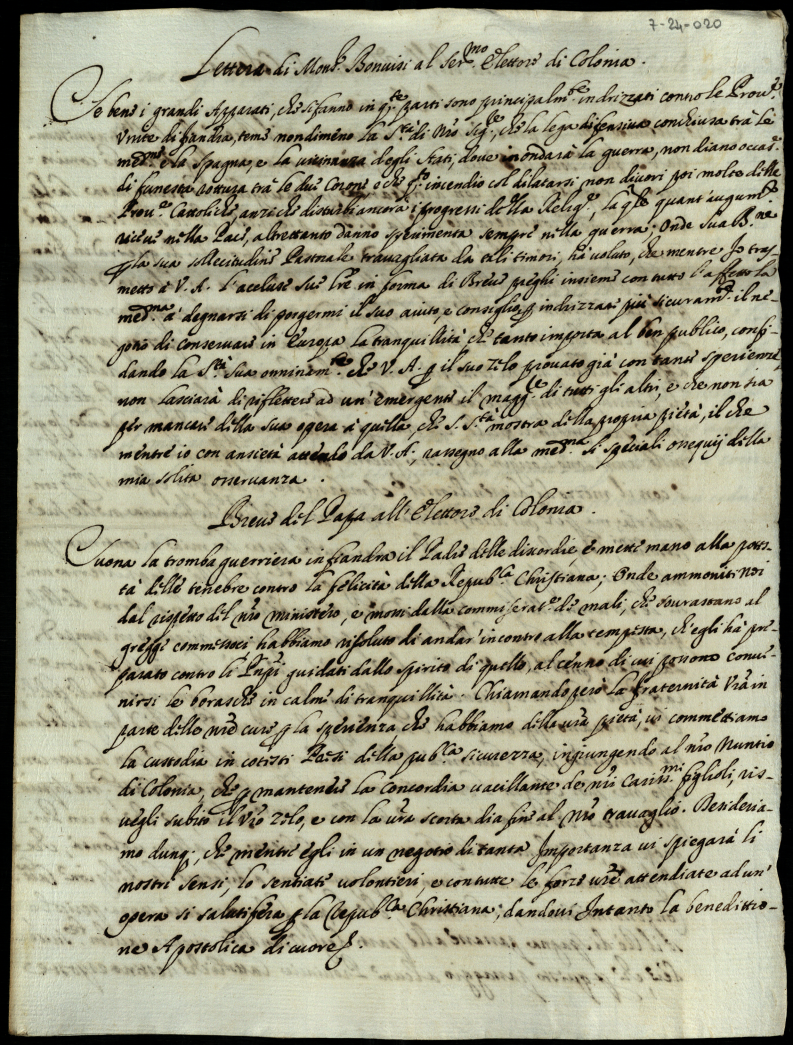 7-24-020
Lettera di Mons.r Bonvisi al Ser.mo Elettore di Colonia.
Se bene i grandi Apparati, che si fanno in q.te parti sono principalm.te indrizzati contro le Prov.e
Unite di fiandra, teme nondimeno la S.tà di N̄ro Sig.re, che la lega difensiva conchiusa trà le
med.me e la Spagna, e la vicinanza degli Stati, dove inondarà la guerra, non diano occas.e
di funesta rottura trà le due Corone e che q.to incendio col dilatarsi non divori poi molte delle
Prov.e Cattoliche, anzi che disturbi ancora i progressi della Relig.e, la q.le quant' augum.to
riceve nella Pace, altrettanto danno sperimenta sempre nella guerra; Onde Sua B.ne
p la sua sollecitudine Pastorale travagliata da tali timori, hà voluto, che mentre Io tras-
metto à V. A. l'accluse sue l̄re in forma di Breve preghi insieme con tutto l'affetto la
med.ma à degnarsi di porgermi il suo aiuto, e consiglio p indrizzare più sicuram.te il ne-
gotio di conservare in Europa la tranquillità che tanto importa al ben publico, confi-
dando la S.tà Sua onninam.te che V. A. p il suo zelo provato già con tante sperienze
non lasciarà di riflettere ad un' emergente il magg.re di tutti gli altri, e che non sia
per mancare della sua opera à quella, che S. S.tà mostra della propria pietà, il che
mentre io con ansietà attendo da V. A., rassegno alla med.ma li speciali ossequij della
mia solita osservanza.
Breve del Papa all' Elettore di Colonia.
Suona la tromba guerriera in fiandra il Padre delle discordie, e mette mano alla potes-
tà delle tenebre contro la felicità della Repub.ca Christiana; Onde ammoniti noi
dal rispetto del n̄ro ministero, e mossi dalla commiserat.e de mali, che sovrastano al
gregge commessoci habbiamo risoluto di andar' incontro alla tempesta, ch' egli hà pre-
parato contro li P̄npi guidati dallo spirito di quello, al cenno di cui possono conve-
nirsi le borasche in calme di tranquillità. Chiamando però la fraternità V̄ra in
parte delle n̄re cure p la sperienza, che habbiamo della v̄ra pietà, vi commettiamo
la custodia in cotesti Paesi della pub.ca sicurezza, ingiungendo al n̄ro Nuntio
di Colonia, che p mantenere la concordia vacillante de n̄ri Cariss.mi figlioli, ris-
vegli subito il V̄ro Zelo, e con la v̄ra scorta dia fine al N̄ro travaglio. Desideria-
mo dunq;, che mentre egli in un negotio di tanta Importanza vi spiegarà li
nostri sensi, lo sentiate volontieri, e con tutte le forze v̄re attendiate ad un'
opera si salutifera p la Repub.ca Christiana; dandovi Intanto la benedittio-
ne Apostolica di cuore.